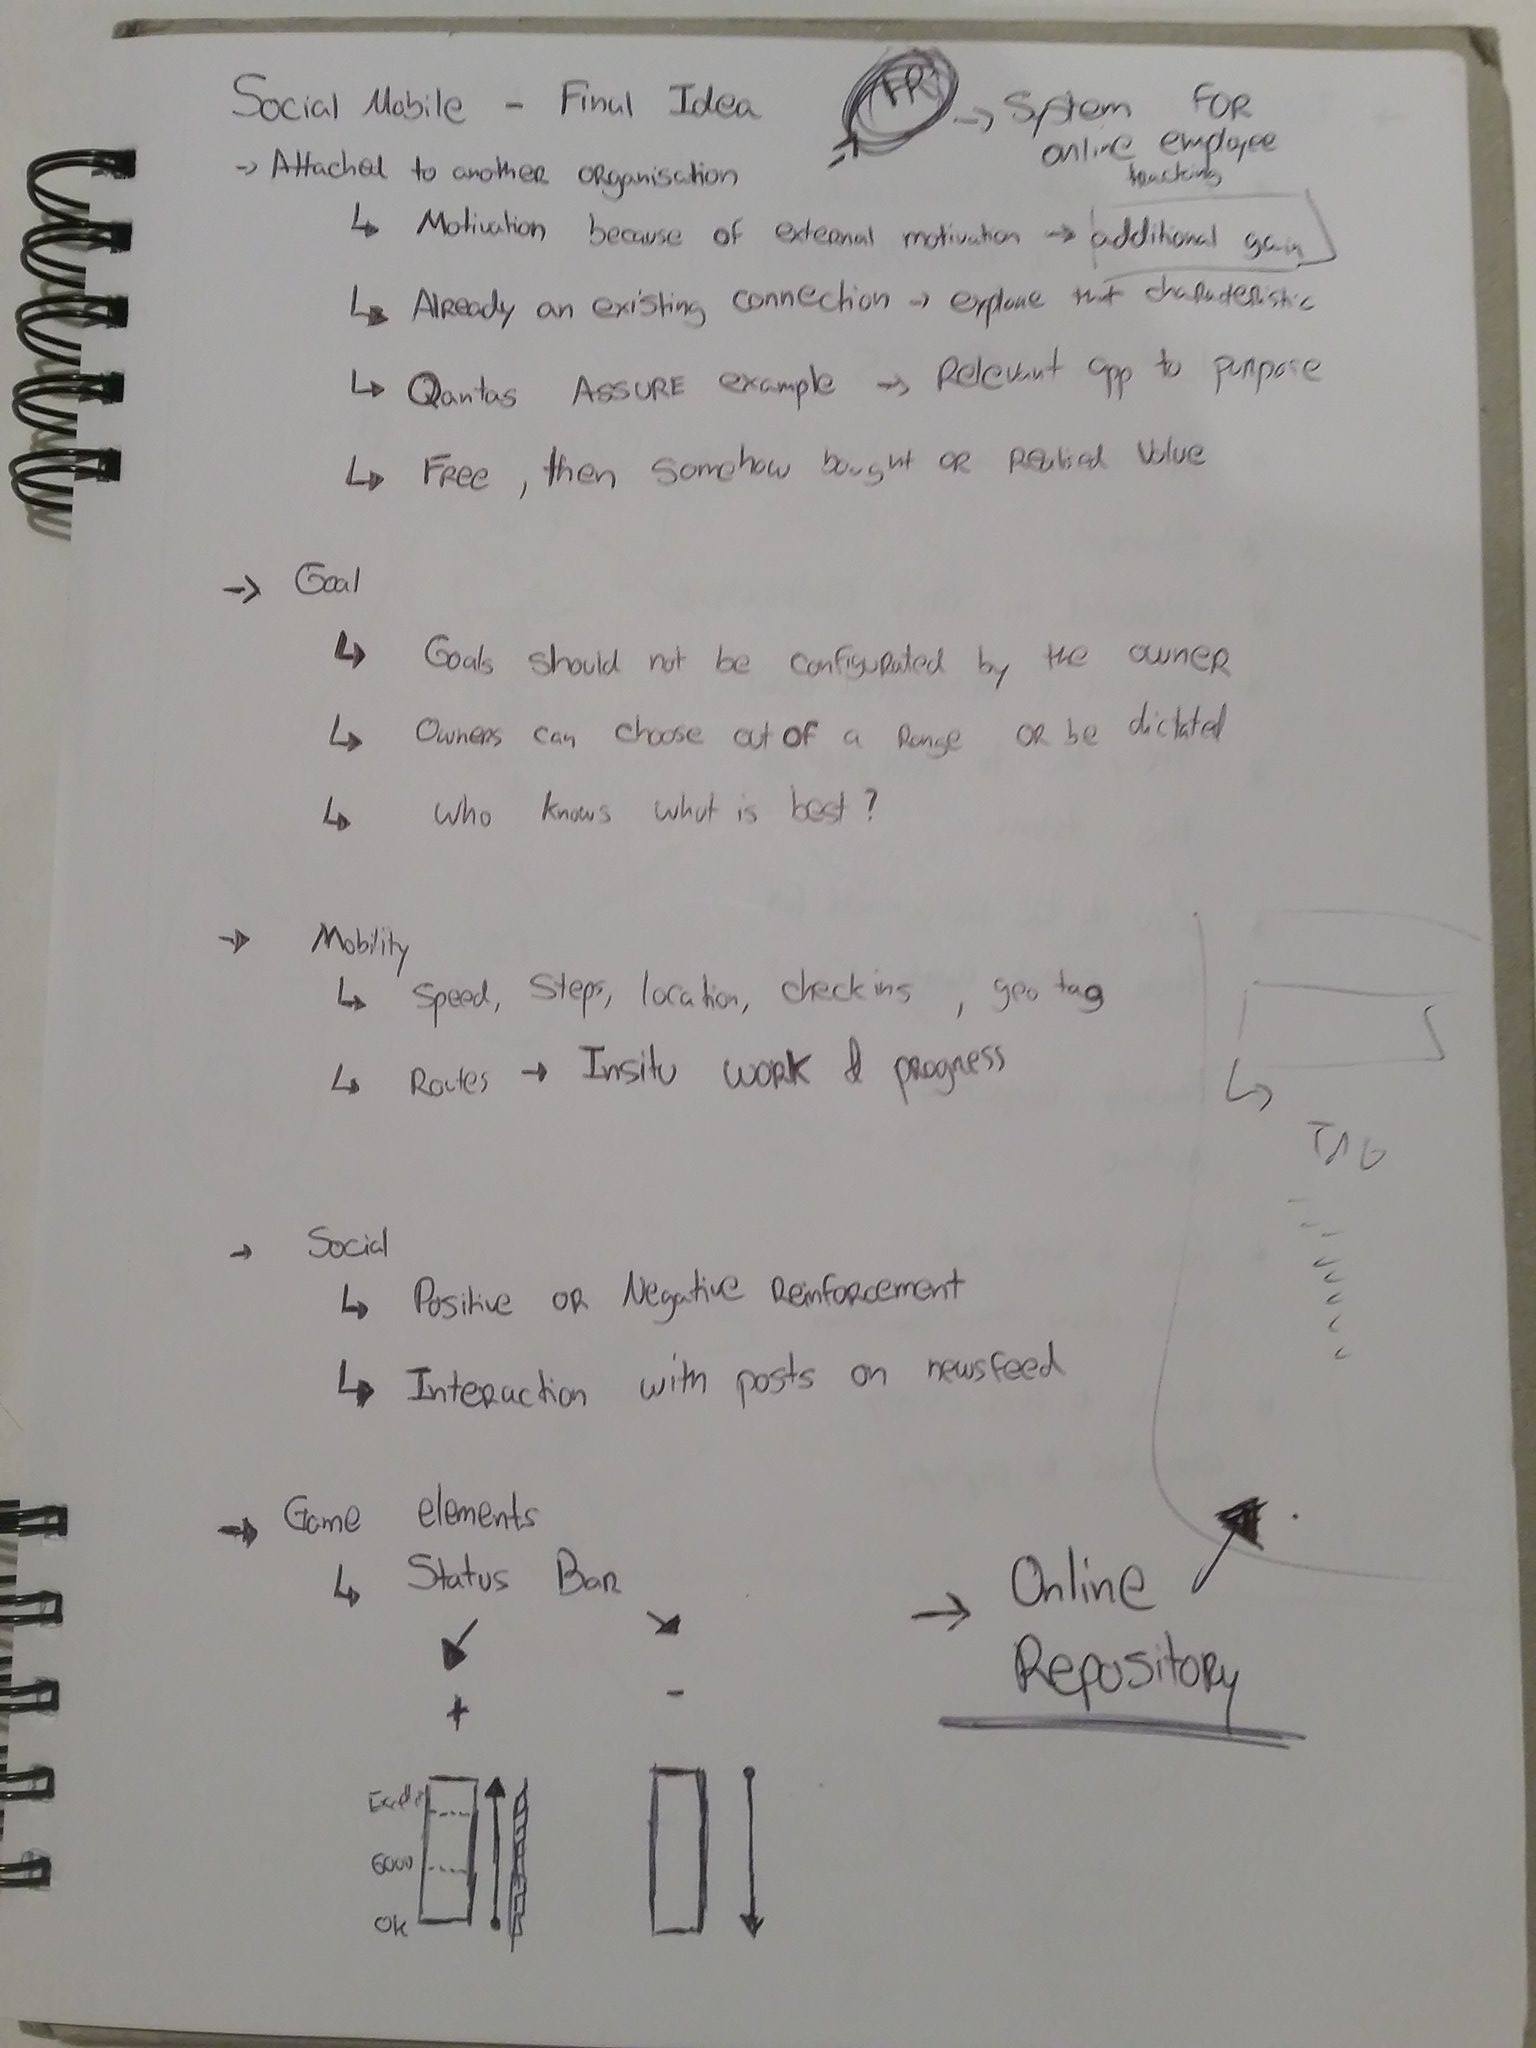 Social Mobile - Final Idea
FRI → System FOR
online employee
tracking
→ Attached to another organisation
↳ Motivation because of external motivation → additional gain
↳ Already an existing connection → explore that characteristic
↳ Qantas ASSURE example → Relevant app to purpose
↳ Free, then somehow bought or value
→ Goal
↳ Goals should not be configurated by the owner
↳ Owners can choose out of a range or be dictated
↳ Who knows what is best?
→ Mobility
↳ Speed, Steps, location, checkins, geo tag
↳ Routes → Insitu work & progress
TAG
→ Social
↳ Positive or Negative Reinforcement
↳ Interaction with posts on newsfeed
→ Game elements
↳ Status Bar
+ -
→ Online
Repository
OK